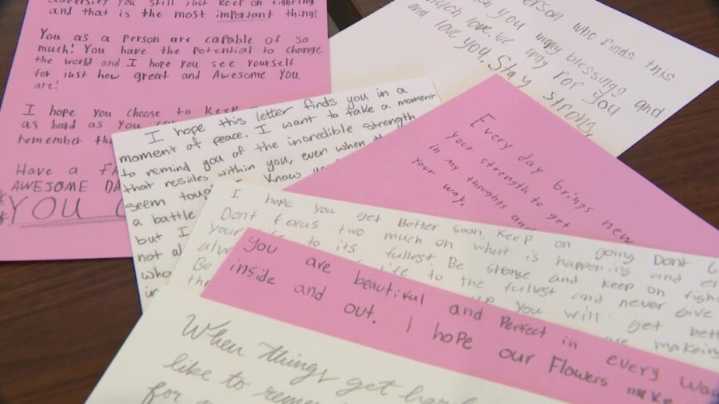 adversity you still just keep on fighting
and that is the most important thing!
You as a person are capable of so
much! You have the potential to change
the world and I hope you see yourself
for just how great and Awesome you
are!
I hope you choose to keep
as hard as you
remember tha
Have a FA
AWESOME DA
YOU
person who finds this
you many blessings and
much love. we pray for you
and love you. Stay strong,
I hope this letter finds you in a
moment of peace. I want to take a moment
to remind you of the incredible strength
that resides within you, even when
seem toug Know
a battle
but I
not al
who
Every day brings new
your strength to get
in my thoughts and
your way.
I hope you get Better soon. Keep on going Dont
Dont focus two much on what is happening and
your to its fullest Be strong and keep on figh
life to the fullest and never give
Be you will get bet
makein
You are beautiful and Perfect in every wa
inside and out. I hope our Flowers make
When things get har
like to rem
for